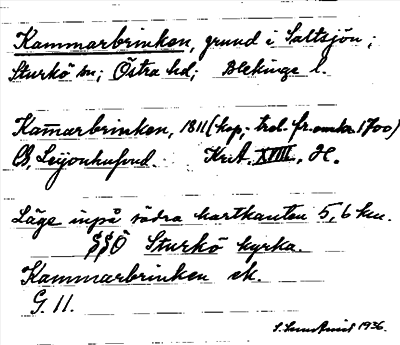 Kammarbrinken, grund i Saltsjön;
Sturkö sn; Östra hd; Blekinge l.
Kam̅arbrinken, 1811 (kop; trol. fr. omkr. 1700)
Leijonhufvud. Kr.A. XVIII, H.
Läge inpå södra kartkanten 5,6 km.
SSÖ Sturkö kyrka.
Kammarbrinken ek.
G. 11.
1936.